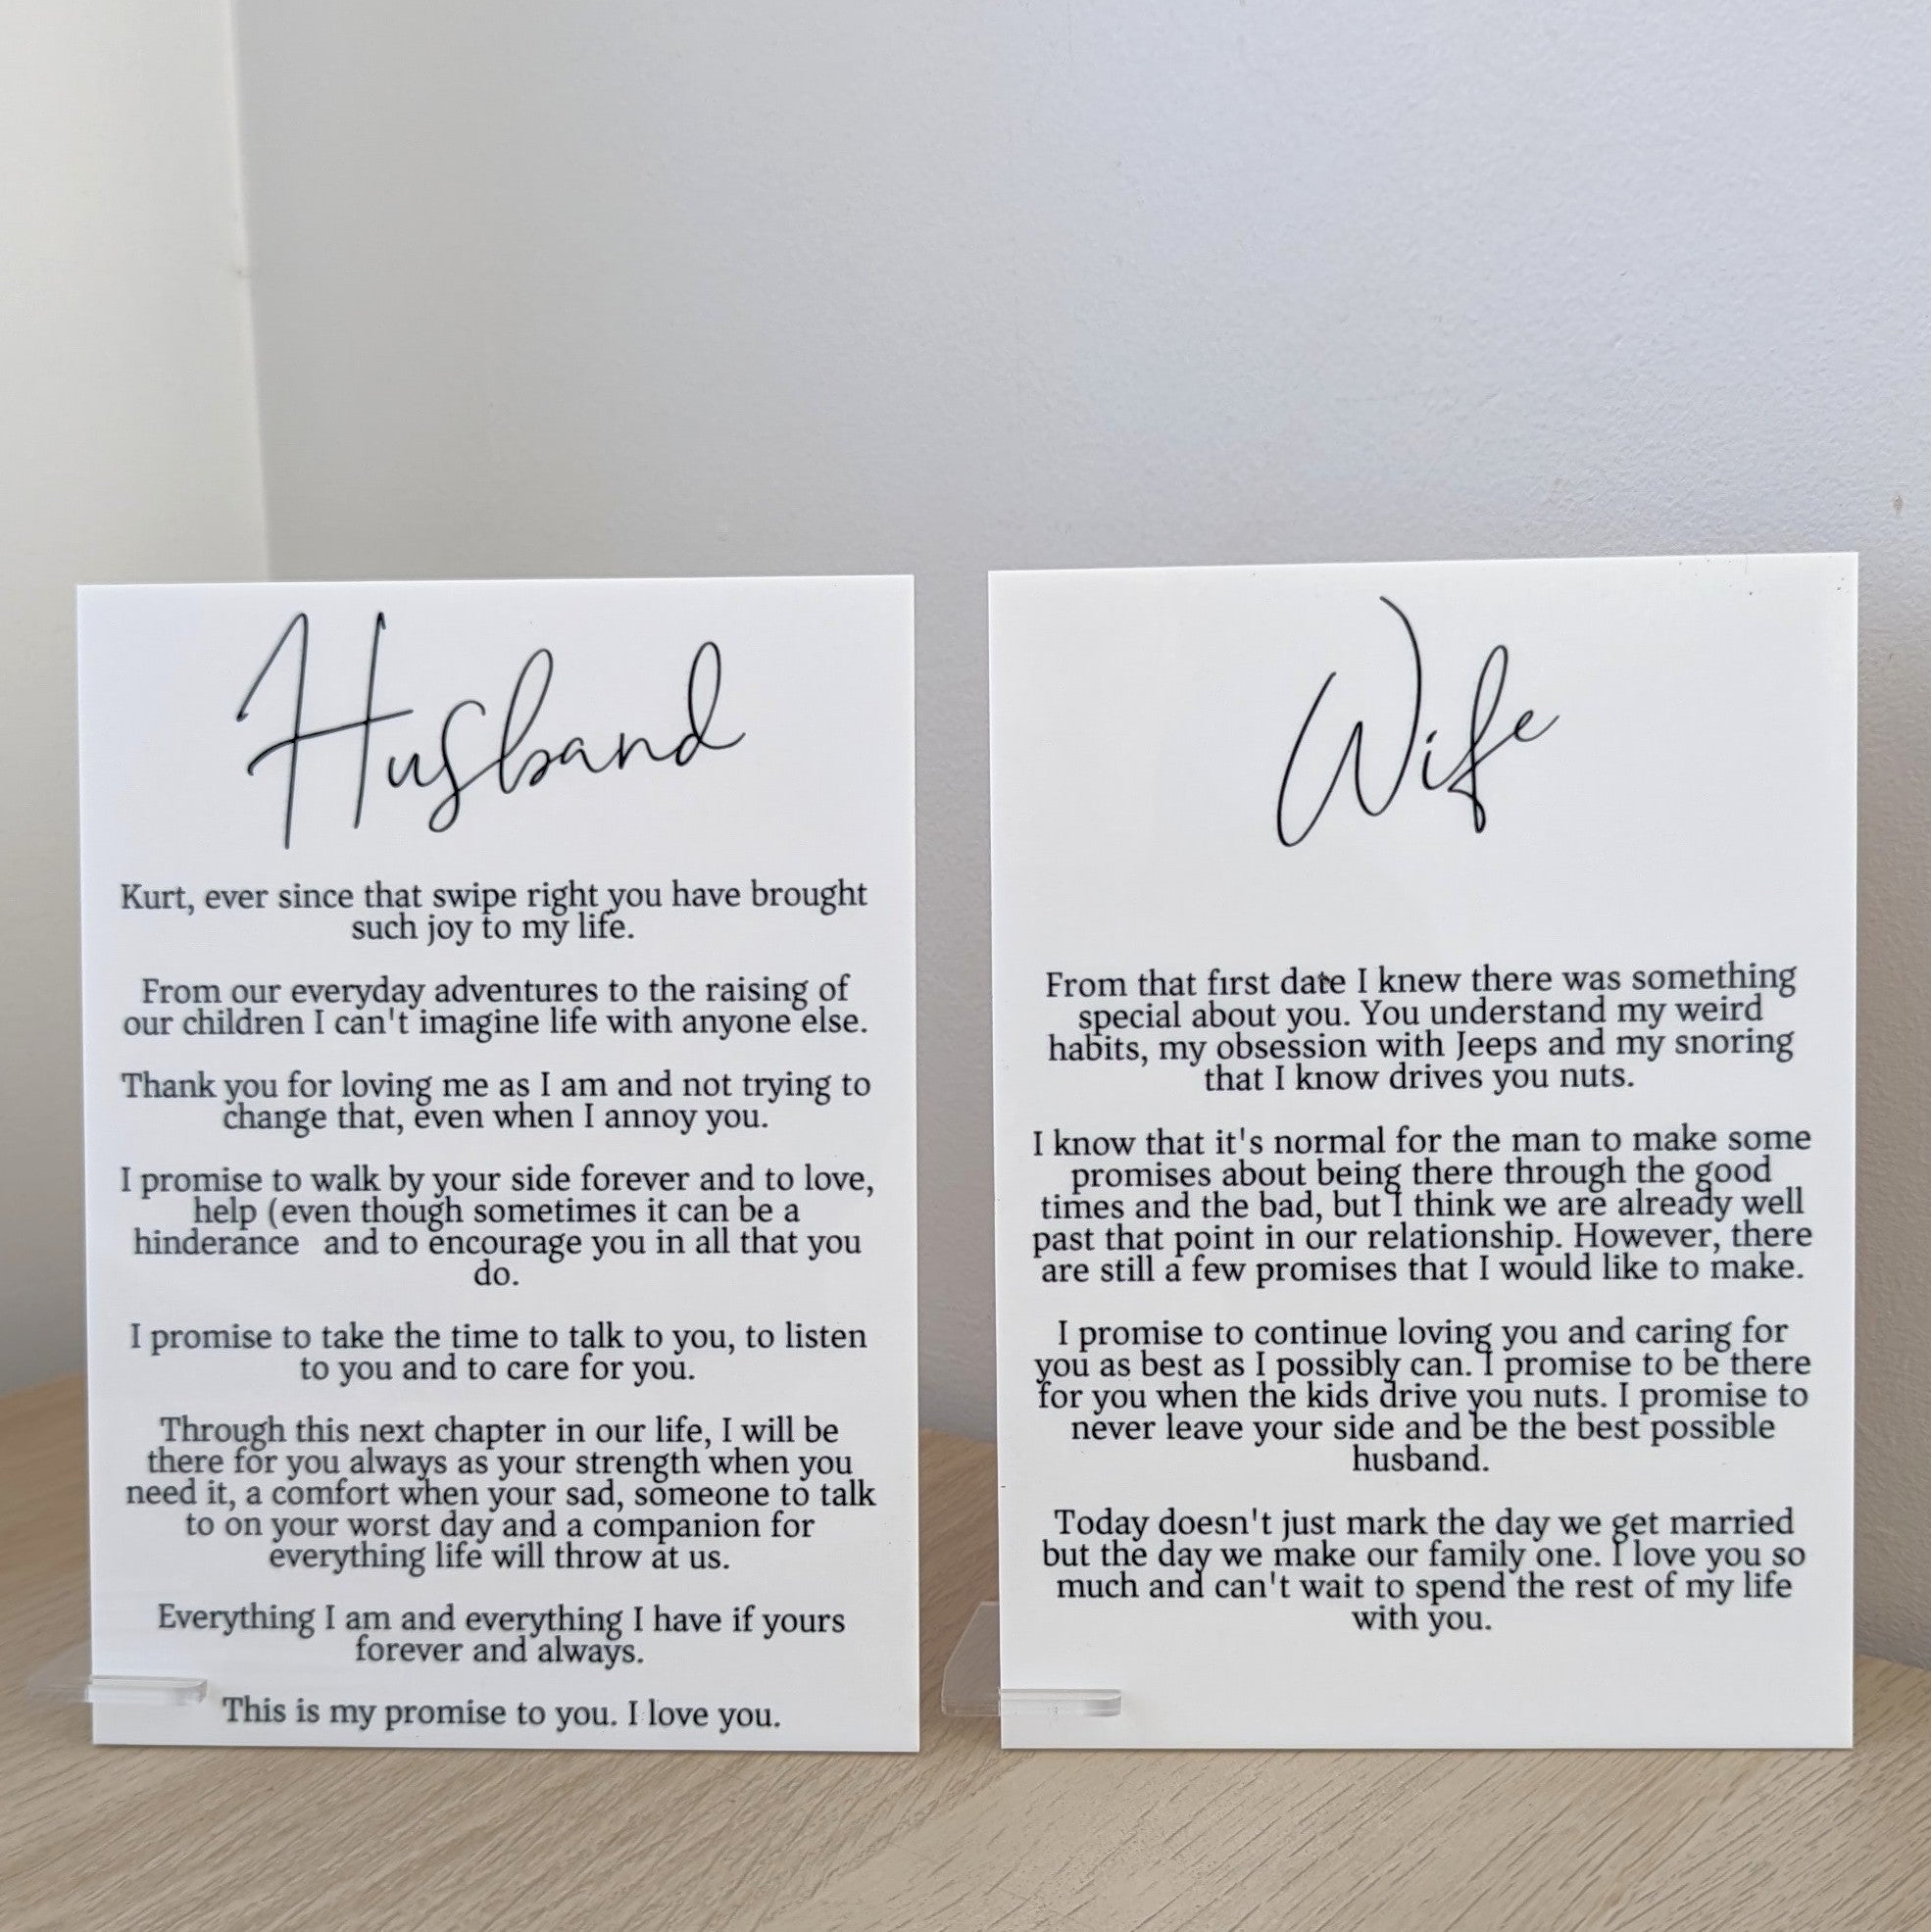 Husband
Kurt, ever since that swipe right you have brought
such joy to my life.
From our everyday adventures to the raising of
our children I can't imagine life with anyone else.
Thank you for loving me as I am and not trying to
change that, even when I annoy you.
I promise to walk by your side forever and to love,
help (even though sometimes it can be a
hinderance and to encourage you in all that you
do.
I promise to take the time to talk to you, to listen
to you and to care for you.
Through this next chapter in our life, I will be
there for you always as your strength when you
need it, a comfort when your sad, someone to talk
to on your worst day and a companion for
everything life will throw at us.
Everything I am and everything I have if yours
forever and always.
This is my promise to you. I love you.
Wife
From that first date I knew there was something
special about you. You understand my weird
habits, my obsession with Jeeps and my snoring
that I know drives you nuts.
I know that it's normal for the man to make some
promises about being there through the good
times and the bad, but I think we are already well
past that point in our relationship. However, there
are still a few promises that I would like to make.
I promise to continue loving you and caring for
you as best as I possibly can. I promise to be there
for you when the kids drive you nuts. I promise to
never leave your side and be the best possible
husband.
Today doesn't just mark the day we get married
but the day we make our family one. I love you so
much and can't wait to spend the rest of my life
with you.